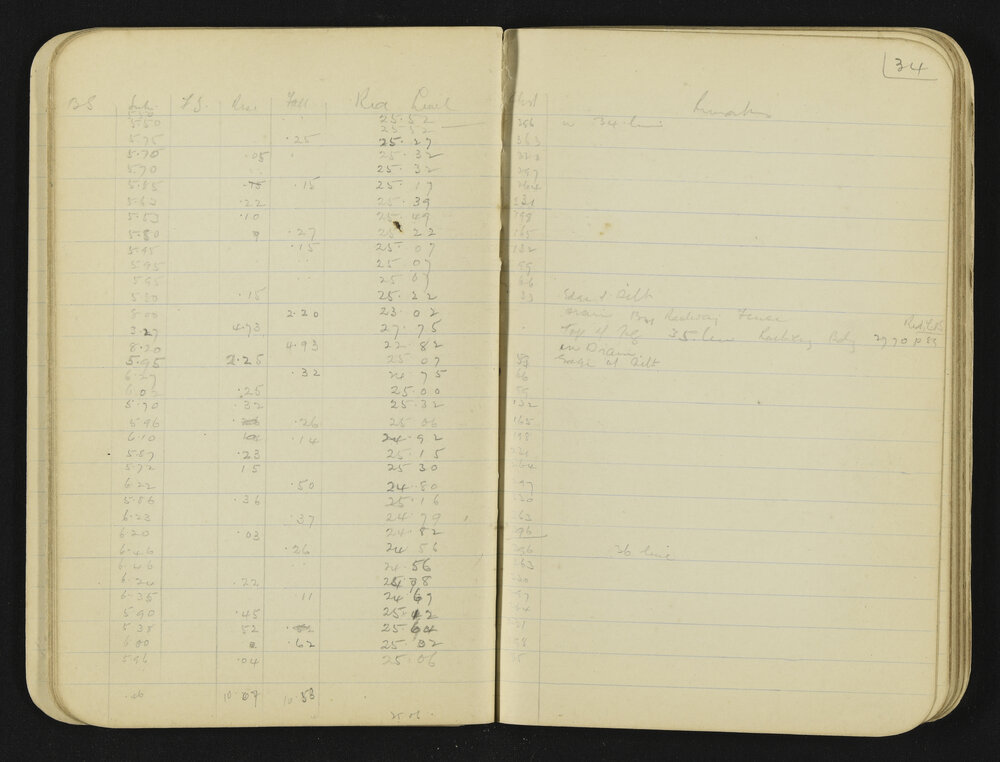 34
BS Inter FS. Rise Fall Red Level Dist Remarks
5.50 25.52
25.52 396 on 34 line
5.75 .25 25.27 363
5.70 .05 25.32
5.70 25.32 297
5.85 .15 25.17 264
5.63 .22 25.39 231
5.53 .10 25.49 198
5.80 .27 25.22 165
5.95 .15 25.07 132
5.95 25.07 99
5.95 25.07 66
5.80 .15 25.22 33 Edge of Silt
8.00 2.20 23.02 Drain By Railway Fence
3.27 4.73 27.75 Top of Peg 35 line Railway Bdy 27.70
8.20 4.93 22.82 in Drain
5.95 2.25 25.07 33 Edge of Silt
6.27 .32 24.75 66
6.02 .25 25.00 99
5.70 .32 25.32 132
5.96 .26 25.06 165
6.10 .14 24.92 198
5.87 .23 25.15 231
5.72 15 25.30 264
6.22 .50 24.80 97
5.86 .36 25.16
6.23 .37 24.79 63
6.20 .03 24.82 96
6.46 .26 24.56 396 36 line
6.46 24.56 63
6.24 .22
6.35 .11 24.67
5.90 .45 25.12
5.38 52 25.64
6.00 .62 25.02
5.96 .04 25.06
.46 10.07 10.53
25.06